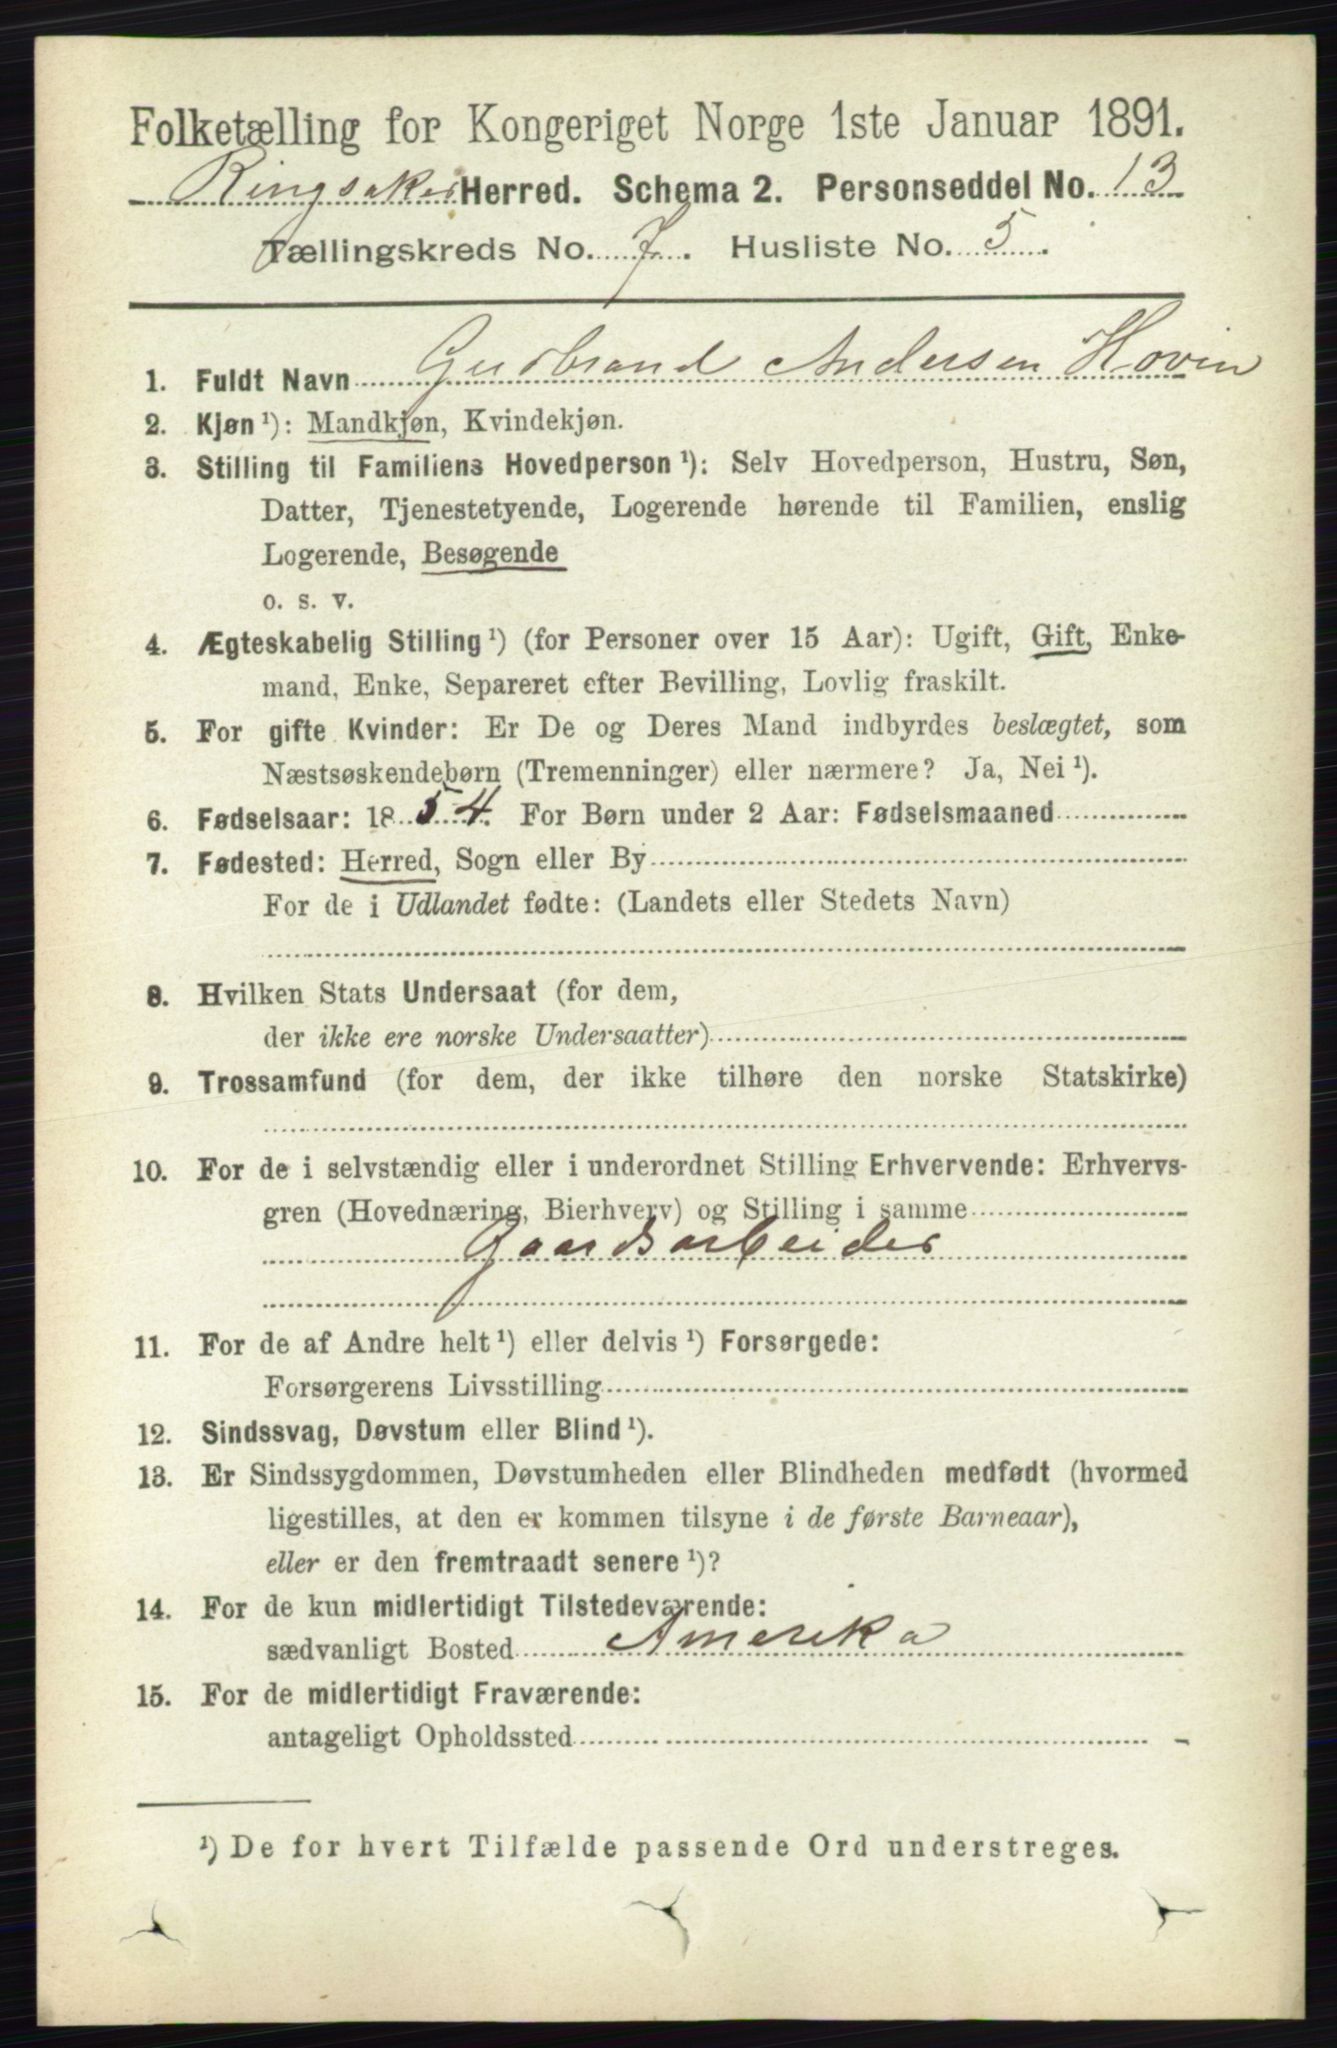 Folketælling for Kongeriget Norge 1ste Januar 1891.
Ringsaker Herred. Schema 2. Personseddel No. 13
Tællingskreds No. 7. Husliste No. 5.
1. Fuldt Navn Gudbrand Andersen Hovin
2. Kjøn ¹): Mandkjøn, Kvindekjøn.
3. Stilling til Familiens Hovedperson ¹): Selv Hovedperson, Hustru, Søn,
Datter, Tjenestetyende, Logerende hørende til Familien, enslig
Logerende, Besøgende
o. s. v.
4. Ægteskabelig Stilling ¹) (for Personer over 15 Aar): Ugift, Gift, Enke-
mand, Enke, Separeret efter Bevilling, Lovlig fraskilt.
5. For gifte Kvinder: Er De og Deres Mand indbyrdes beslægtet, som
Næstsøskendebørn (Tremenninger) eller nærmere? Ja, Nei ¹).
6. Fødselsaar: 1854. For Børn under 2 Aar: Fødselsmaaned
7. Fødested: Herred, Sogn eller By
For de i Udlandet fødte: (Landets eller Stedets Navn)
8. Hvilken Stats Undersaat (for dem,
der ikke ere norske Undersaatter)
9. Trossamfund (for dem, der ikke tilhøre den norske Statskirke)
10. For de i selvstændig eller i underordnet Stilling Erhvervende: Erhvervs-
gren (Hovednæring, Bierhverv) og Stilling i samme
Gaardsarbeider
11. For de af Andre helt ¹) eller delvis ¹) Forsørgede:
Forsørgerens Livsstilling
12. Sindssvag, Døvstum eller Blind ¹).
13. Er Sindssygdommen, Døvstumheden eller Blindheden medfødt (hvormed
ligestilles, at den er kommen tilsyne i de første Barneaar),
eller er den fremtraadt senere ¹)?
14. For de kun midlertidigt Tilstedeværende:
sædvanligt Bosted Amerika
15. For de midlertidigt Fraværende:
antageligt Opholdssted
¹) De for hvert Tilfælde passende Ord understreges.